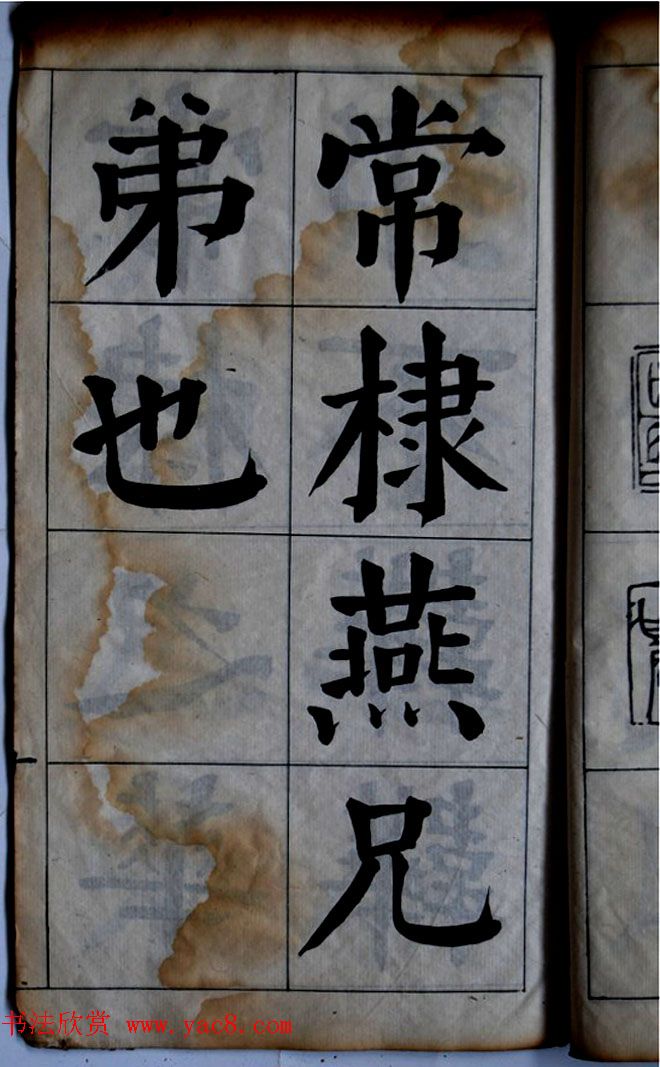 常棣燕兄
弟也
书法欣赏 www.yac8.com